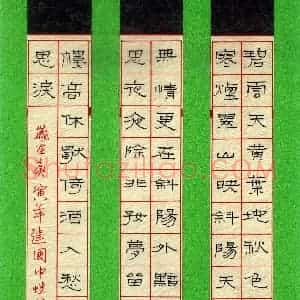 碧雲天黄葉地秋色
寒煙翠山映斜陽天
無情更在斜陽外黯
思夜夜除非好夢留
樓高休獨倚酒入愁
思淚